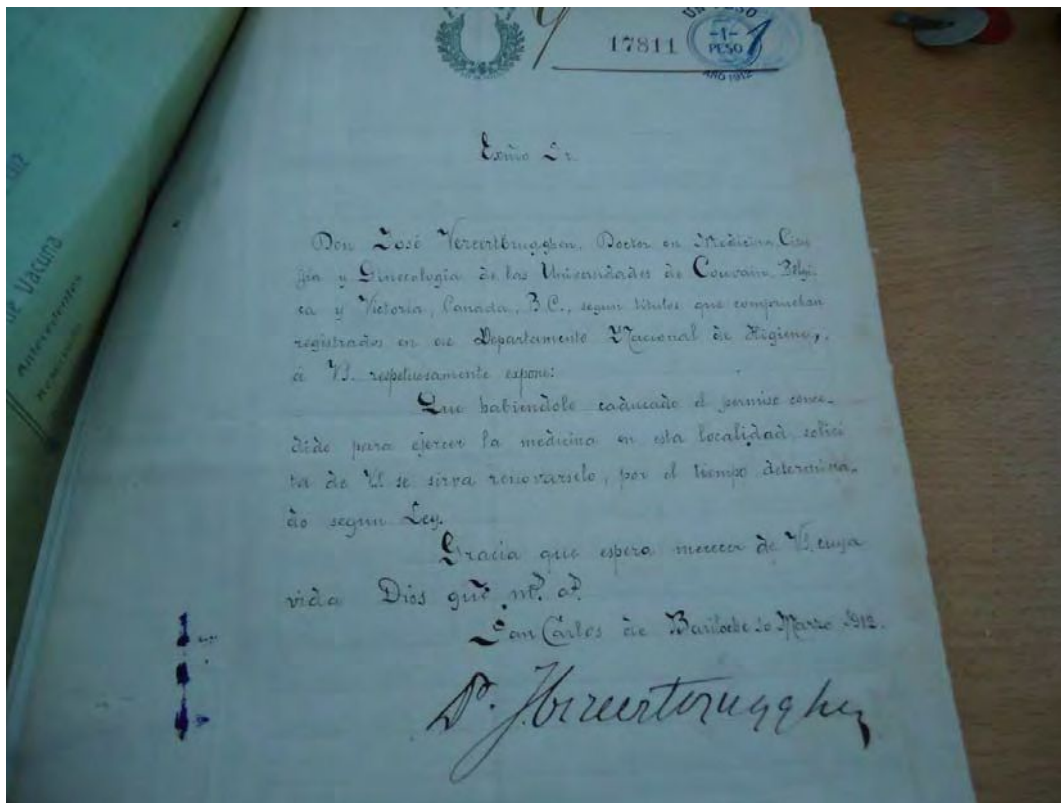 17811
UN PESO
-1-
PESO
1
AÑO 1912
Exmo Sr.
Don José Vereertbrugghen, Doctor en Medicina, Ciru
gia y Ginecologia de las Universidades de Louvain, Belgi-
ca y Victoria, Canada, B.C., segun titulos que comprueban
registrados en ese Departamento Nacional de Higiene,
á V. respetuosamente expone:
Que habiendole caducado el permiso conce-
dido para ejercer la medicina en esta localidad, solici
ta de U. se sirva renovarselo, por el tiempo determina-
do segun Ley.
Gracia que espera merecer de V. cuya
vida Dios gue. ms. as.
San Carlos de Bariloche 20 Marzo 1912.
Dr. J Vereertbrugghen
de Vacuna
Antecedentes